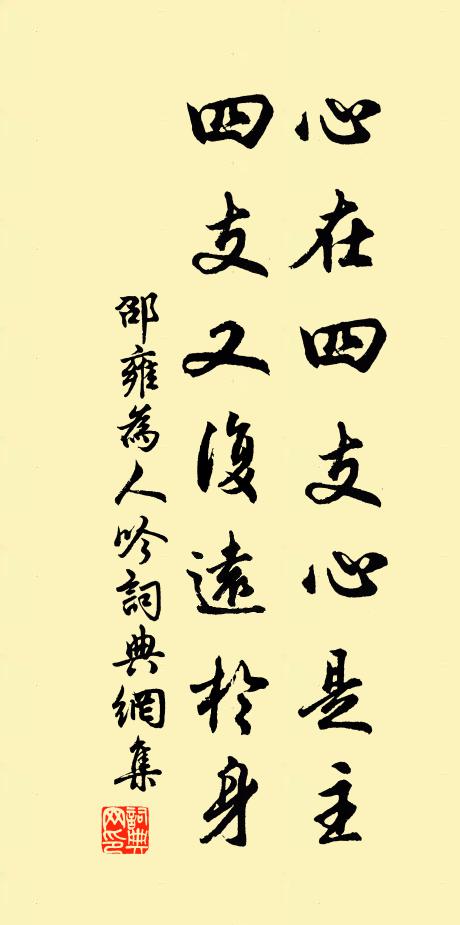 心在四支心是主
四支又復遠於身
邵雍為人吟詞典網集
詞典
网印